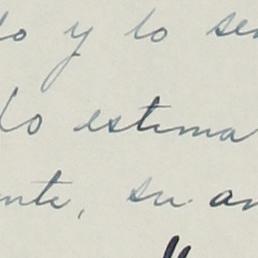 do y lo sen
lo estima
ente, su an